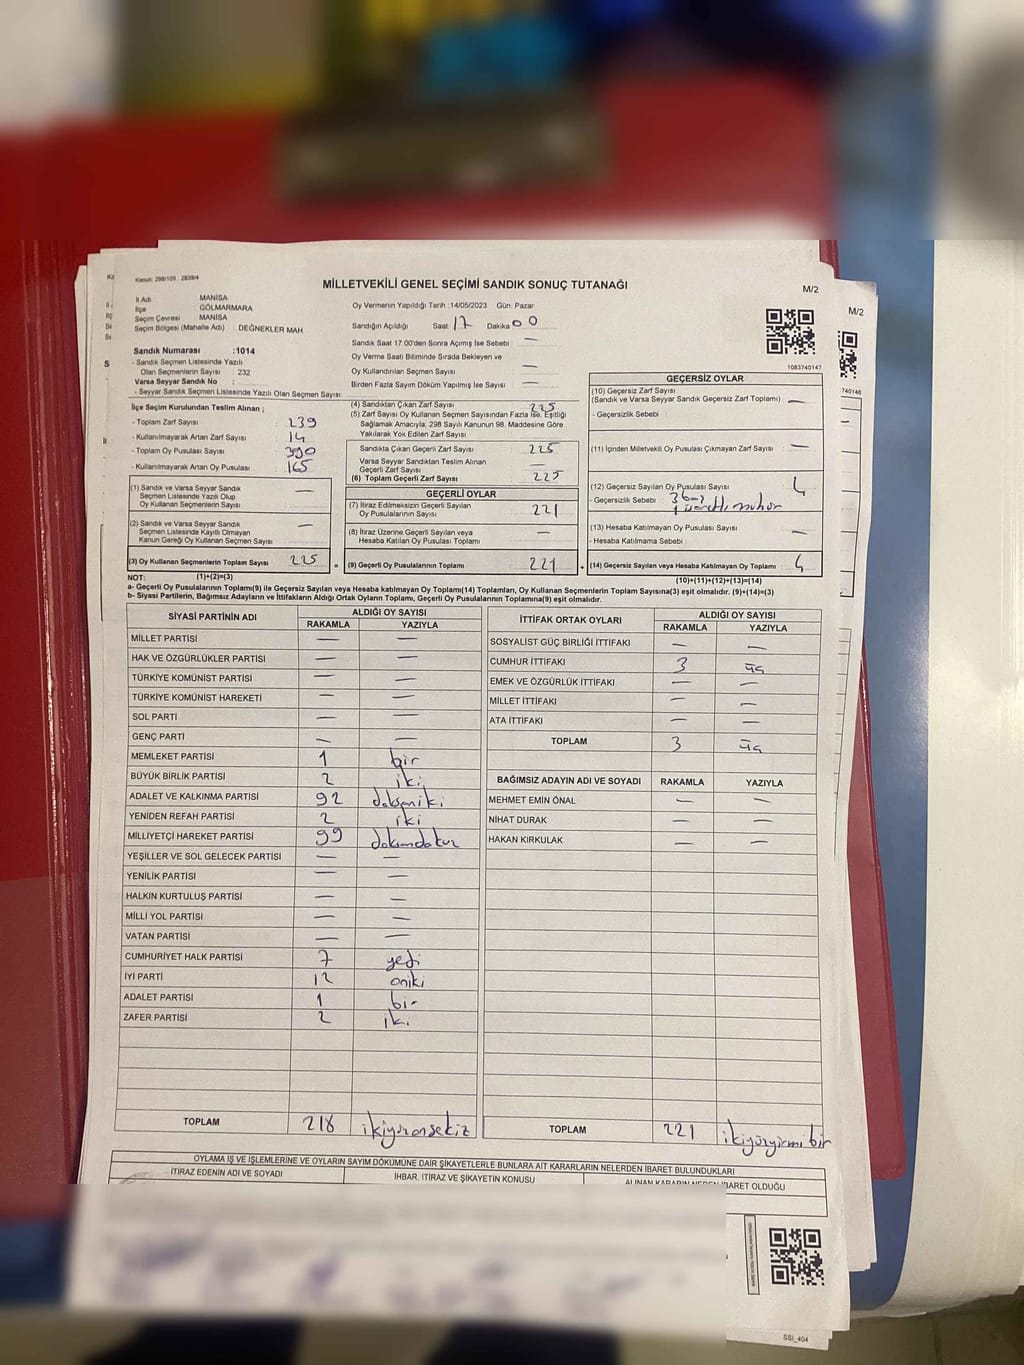 Kanun: 298/105 , 2839/4
MİLLETVEKİLİ GENEL SEÇİMİ SANDIK SONUÇ TUTANAĞI
M/2
M/2
İl Adı MANİSA
İlçe GÖLMARMARA
Seçim Çevresi MANİSA
Seçim Bölgesi (Mahalle Adı) : DEĞNEKLER MAH
Sandık Numarası :1014
- Sandık Seçmen Listesinde Yazılı
Olan Seçmenlerin Sayısı : 232
Varsa Seyyar Sandık No :
- Seyyar Sandık Seçmen Listesinde Yazılı Olan Seçmen Sayısı
İlçe Seçim Kurulundan Teslim Alınan ;
- Toplam Zarf Sayısı 239
- Kullanılmayarak Artan Zarf Sayısı 14
- Toplam Oy Pusulası Sayısı 390
- Kullanılmayarak Artan Oy Pusulası 165
(1) Sandık ve Varsa Seyyar Sandık
Seçmen Listesinde Yazılı Olup
Oy Kullanan Seçmenlerin Sayısı —
(2) Sandık ve Varsa Seyyar Sandık
Seçmen Listesinde Kayıtlı Olmayan
Kanun Gereği Oy Kullanan Seçmen Sayısı —
(3) Oy Kullanan Seçmenlerin Toplam Sayısı 225
Oy Vermenin Yapıldığı Tarih :14/05/2023 Gün: Pazar
Sandığın Açıldığı Saat 17 Dakika 00
Sandık Saat 17:00'den Sonra Açılmış İse Sebebi —
Oy Verme Saati Bitiminde Sırada Bekleyen ve
Oy Kullandırılan Seçmen Sayısı —
Birden Fazla Sayım Döküm Yapılmış İse Sayısı —
(4) Sandıktan Çıkan Zarf Sayısı 225
(5) Zarf Sayısı Oy Kullanan Seçmen Sayısından Fazla İse, Eşitliği
Sağlamak Amacıyla, 298 Sayılı Kanunun 98. Maddesine Göre
Yakılarak Yok Edilen Zarf Sayısı
Sandıkta Çıkan Geçerli Zarf Sayısı 225
Varsa Seyyar Sandıktan Teslim Alınan
Geçerli Zarf Sayısı —
(6) Toplam Geçerli Zarf Sayısı 225
GEÇERLİ OYLAR
(7) İtiraz Edilmeksizin Geçerli Sayılan
Oy Pusulalarının Sayısı 221
(8) İtiraz Üzerine Geçerli Sayılan veya
Hesaba Katılan Oy Pusulası Toplamı —
= (9) Geçerli Oy Pusulalarının Toplamı 221
1083740147
GEÇERSİZ OYLAR
(10) Geçersiz Zarf Sayısı
(Sandık ve Varsa Seyyar Sandık Geçersiz Zarf Toplamı) —
- Geçersizlik Sebebi :
(11) İçinden Milletvekili Oy Pusulası Çıkmayan Zarf Sayısı —
(12) Geçersiz Sayılan Oy Pusulası Sayısı 4
- Geçersizlik Sebebi
(13) Hesaba Katılmayan Oy Pusulası Sayısı —
- Hesaba Katılmama Sebebi :
+ (14) Geçersiz Sayılan veya Hesaba Katılmayan Oy Toplamı 4
NOT: (1)+(2)=(3) (10)+(11)+(12)+(13)=(14)
a- Geçerli Oy Pusulalarının Toplamı(9) ile Geçersiz Sayılan veya Hesaba katılmayan Oy Toplamı(14) Toplamları, Oy Kullanan Seçmenlerin Toplam Sayısına(3) eşit olmalıdır. (9)+(14)=(3)
b- Siyasi Partilerin, Bağımsız Adayların ve İttifakların Aldığı Ortak Oyların Toplamı, Geçerli Oy Pusulalarının Toplamına(9) eşit olmalıdır.
SİYASİ PARTİNİN ADI ALDIĞI OY SAYISI
RAKAMLA YAZIYLA
MİLLET PARTİSİ — —
HAK VE ÖZGÜRLÜKLER PARTİSİ — —
TÜRKİYE KOMÜNİST PARTİSİ — —
TÜRKİYE KOMÜNİST HAREKETİ — —
SOL PARTİ — —
GENÇ PARTİ — —
MEMLEKET PARTİSİ 1 bir
BÜYÜK BİRLİK PARTİSİ 2 iki
ADALET VE KALKINMA PARTİSİ 92 doksaniki
YENİDEN REFAH PARTİSİ 2 iki
MİLLİYETÇİ HAREKET PARTİSİ 99 doksandokuz
YEŞİLLER VE SOL GELECEK PARTİSİ — —
YENİLİK PARTİSİ — —
HALKIN KURTULUŞ PARTİSİ — —
MİLLİ YOL PARTİSİ — —
VATAN PARTİSİ — —
CUMHURİYET HALK PARTİSİ 7 yedi
İYİ PARTİ 12 oniki
ADALET PARTİSİ 1 bir
ZAFER PARTİSİ 2 iki
TOPLAM 218 ikiyüzonsekiz
İTTİFAK ORTAK OYLARI ALDIĞI OY SAYISI
RAKAMLA YAZIYLA
SOSYALİST GÜÇ BİRLİĞİ İTTİFAKI — —
CUMHUR İTTİFAKI 3 üç
EMEK VE ÖZGÜRLÜK İTTİFAKI — —
MİLLET İTTİFAKI — —
ATA İTTİFAKI — —
TOPLAM 3 üç
BAĞIMSIZ ADAYIN ADI VE SOYADI RAKAMLA YAZIYLA
MEHMET EMİN ÖNAL — —
NİHAT DURAK — —
HAKAN KIRKULAK — —
TOPLAM 221 ikiyüzyirmibir
OYLAMA İŞ VE İŞLEMLERİNE VE OYLARIN SAYIM DÖKÜMÜNE DAİR ŞİKAYETLERLE BUNLARA AİT KARARLARIN NELERDEN İBARET BULUNDUKLARI
İTİRAZ EDENİN ADI VE SOYADI İHBAR, İTİRAZ VE ŞİKAYETİN KONUSU ALINAN KARARIN NEDEN İBARET OLDUĞU
SSI_404